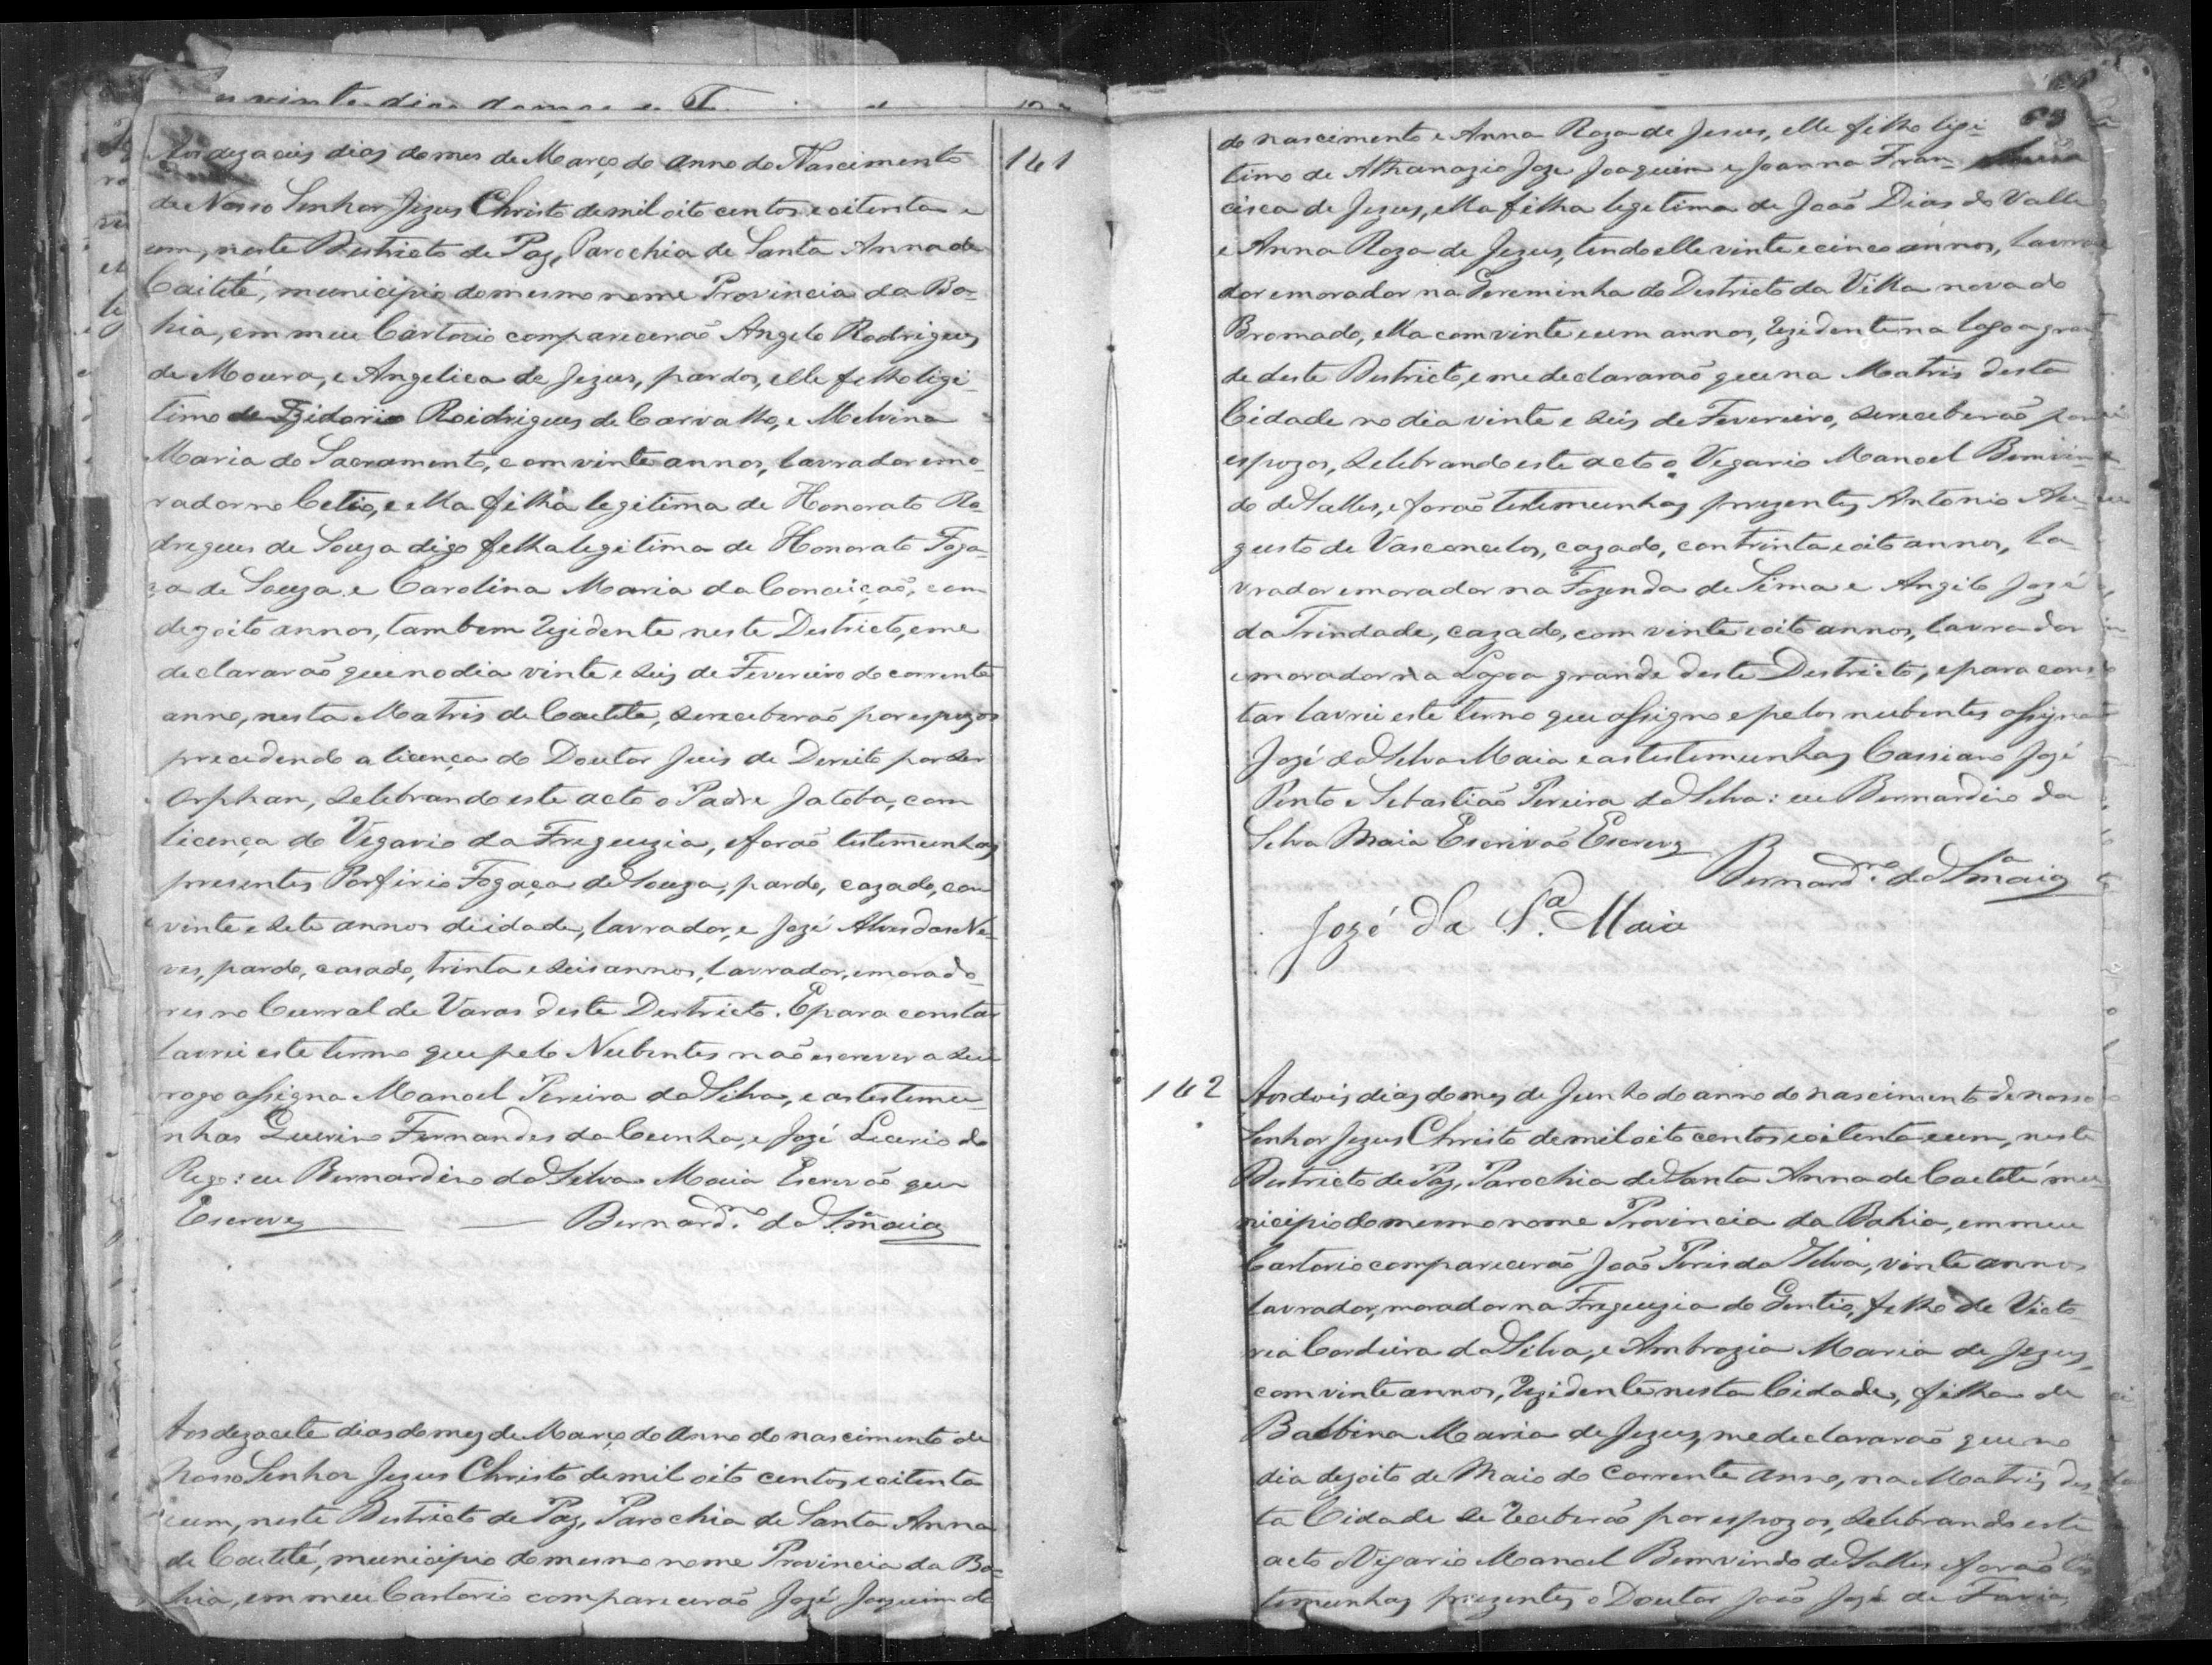 Aos dezaceis dias do mes de Março do anno do Nascimento
141
de Nosso Senhor Jezus Christo de mil oito centos e oitenta e
um, neste Destricto de Paz, Parochia de Santa Anna de
Caiteté, municipio do mesmo nome Provincia da Ba-
hia, em meu Cartorio comparecerão Angelo Rodrigues
de Moura, e Angelica de Jezus, pardos, elle filho ligi-
timo de Izidorio Roidrigues de Carvalho, e Melvina
Maria do Sacramento, com vinte annos, lavrador e mo-
rador no e ella filha legitima de Honorato Ro-
dregues de Souza digo filha legitima de Honorato Foga-
za de Souza e Carolina Maria da Conceição, com
dezoito annos, tambem rezidente neste Destricto, e me
declararão que no dia vinte e seis de Fevereiro do corrente
anno, nesta Matris de Caeteté, se receberão por espozos
precedendo a licença do Doutor Juis de Dereito por ser
Orphan, selebrando este acto o Padre Jatoba, com
licença do Vegario da Freguezia, e forão testemunhas
presentes Porfirio Fogaça de Souza, pardo, cazado, com
vinte e sete annos de idade, lavrador, e Jozé Alves das Ne-
ves, pardo, casado, trinta e seis annos, lavrador, e morado-
res no Curral de Varas deste Destricto. E para constar
lavrei este termo que pelo Nubentes não escrever a seu
rogo assigna Manoel Pereira da Silva, e as testemu-
nhas Fernandes da Cunha, e Jozé Licerio do
Rego: eu Bernardino da Selva Maia Escrivão que
Escrevy Bernard.no da S.a Maia
Aos dezacete dias do mez de Março do Anno do nascimento de
Nosso Senhor Jezus Christo de mil oito centos e oitenta
e um, neste Destricto de Paz, Parochia de Santa Anna
de Caeteté, municipio do mesmo nome Provincia da Ba-
hia, em meu Cartorio comparecerão Jozé Joaquim do
69
do nascimento e Anna Roza de Jesus, elle filho ligi-
timo de Athanazio Joze Joaquim e Joanna Fran-
cisca de Jezus, ella filha legetima de João Dias do Valle
e Anna Roza de Jezus, tendo elle vinte e cinco annos, lavra
dor e morador na do Destricto da Villa nova do
Bromado, ella com vinte e um annos, rezidente na lagoa gran
de deste Destricto, e me declararão que na Matris desta
Cidade no dia vinte e seis de Fevereiro, se receberão por
espozos, selebrando este acto o Vegario Manoel Bemvin
do de Salles, e forão testemunhas prezentes Antonio Au-
gusto de Vasconcelos, cazado, con trinta e oito annos, la
vrador e morador na Fazenda de Sima e Angelo Jozé
da Trindade, cazado, com vinte e oito annos, lavrador
e morador na Lagoa grande deste Destricto, e para cons
tar lavrei este termo que assigno e pelos nubentes assigna
Jozé da Selva Maia e as testemunhas Cassiano Jozé
Pinto e Sebastião Pereira da Silva: eu Bernardino da
Selva Maia Escrivão Escrevy
Bernard.no da S.a Maia
Jozé da S.a Maia
142
Aos dois dias do mez de Junho do anno do nascimento de nosso
Senhor Jezus Christo de mil oito centos e oitenta e um, neste
Destricto de Paz, Parochia de Santa Anna de Caeteté mu
nicipio do mesmo nome Provincia da Bahia, em meu
Cartorio comparecerão João Pires da Selva, vinte annos
lavrador, morador na Freguezia do Gentio, filho de Victo
ria Cordeira da Silva, e Ambrozia Maria de Jezus,
com vinte annos, rezidente nesta Cidade, filha de
Balbina Maria de Jezus, me declararão que no
dia dezoito de Maio do corrente anno, na Matris des
ta Cidade se receberão por espozos, selebrando este
acto o Vigario Manoel Bemvindo de Salles e forão tes
temunhas prezentes o Doutor João José de Faria,